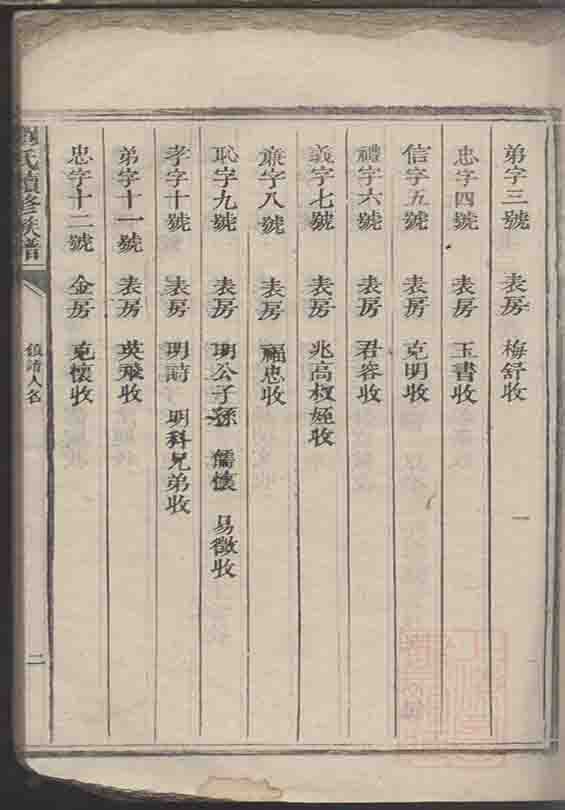 弟字三號 表房 梅舒收
忠字四號 表房 玉書收
信字五號 表房 克明收
禮字六號 表房 君容收
義字七號 表房 兆高叔姪收
亷字八號 表房 福忠收
恥字九號 表房 明公子孫 儒懷 易徵收
孝字十號 表房 明詩 明科兄弟收
弟字十一號 表房 英飛收
忠字十二號 金房 克懷收
氏續修族譜
領譜人名
二